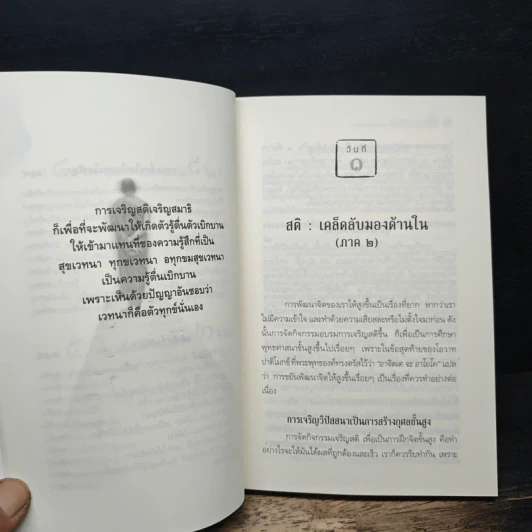 การเจริญสติเจริญสมาธิ
ก็เพื่อที่จะพัฒนาให้เกิดตัวรู้ตื่นตัวเบิกบาน
ให้เข้ามาแทนที่ของความรู้สึกที่เป็น
สุขเวทนา ทุกขเวทนา อทุกขมสุขเวทนา
เป็นความรู้ตื่นเบิกบาน
เพราะเห็นด้วยปัญญาอันชอบว่า
เวทนาก็คือตัวทุกข์นั่นเอง
วันที่
๑
สติ : เคล็ดลับมองด้านใน
(ภาค ๒)
การพัฒนาจิตของเราให้สูงขึ้นเป็นเรื่องที่ยาก หากว่าเรา
ไม่มีความเข้าใจ และทำด้วยความเสียสละหรือไม่ตั้งใจมาก่อน ดัง
นั้นการจัดกิจกรรมอบรมการเจริญสติขึ้น ก็เพื่อเป็นการศึกษา
พุทธศาสนาขั้นสูงขึ้นไปเรื่อยๆ เพราะในข้อสุดท้ายของโอวาท
ปาติโมกข์ ที่พระพุทธองค์ทรงตรัสไว้ว่า "อาจิตเต จะ อาโยโค" แปล
ว่า การขยันพัฒนาจิตให้สูงขึ้นเรื่อยๆ เป็นเรื่องที่ควรทำอย่างต่อ
เนื่อง
การเจริญวิปัสสนาเป็นการสร้างกุศลขั้นสูง
การจัดกิจกรรมเจริญสติ เพื่อเป็นการฝึกจิตขั้นสูง คือทำ
อย่างไรจะให้มันได้ผลที่ถูกต้องและเร็ว เราก็ควรรีบทำกัน เพราะ